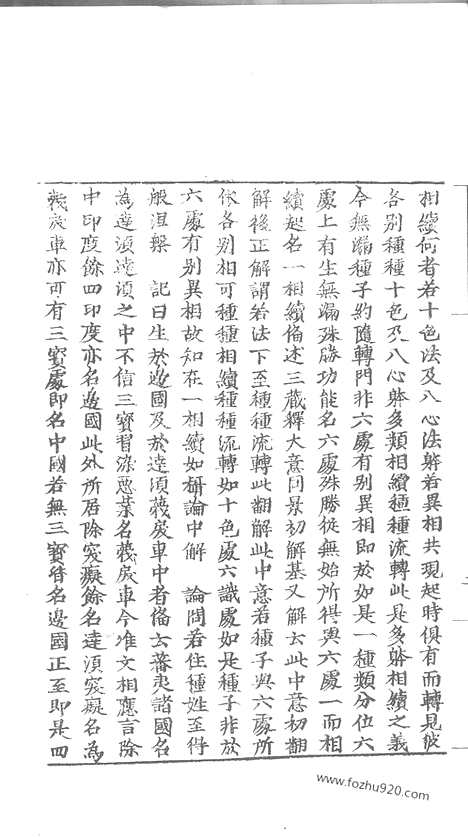 相續何者若十色法及八心法躰若異相共現起時俱有而轉見彼
各別種種十色及八心躰多類相續種種流轉此是多躰相續之義
今無漏種子約隨轉門非六處有別異相即於如是一種類分位六
處上有生無漏殊勝功能名六處殊勝從無始所得與六處一而相
續起名一相續俻述三藏釋大意曰景初解基又解云此中意初翻
解後正解謂若法下至種種流轉此翻解此中意若種子與六處所
依各別相可種種相續種種流轉如十色處六識處如是種子非於
六處有別異相故知在一相續如研論中解 論問若住種姓至得
般涅槃 記曰生於邊國及於達須蔑戾車中者俻云蕃夷諸國名
為邊須達須之中不信三寶習染惡業名蔑戾車今准文相應言除
中印度餘四印度亦名邊國此外所居除㝡癡餘名達須㝡癡名為
蔑戾車亦可有三寶處即名中國若無三寶皆名邊國正至即是四
www.fozhu920.com